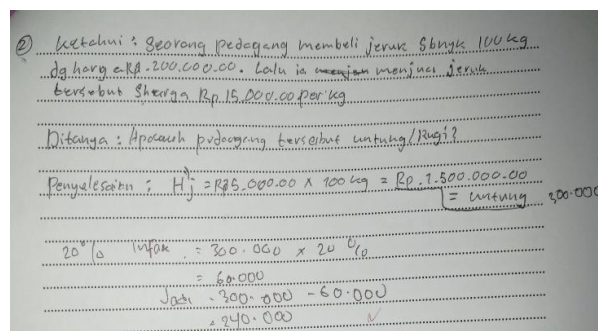 ② Ketahui : Seorang pedagang membeli jeruk Sbnyk 100 kg
dg harga Rp.1.200.000.00. Lalu ia menjual jeruk
tersebut Sharga Rp.15.000.00 per kg
Ditanya : Apakah pedagang tersebut untung/Rugi?
Penyelesaian : Hj = Rp15.000.00 x 100 kg = Rp.1.500.000.00
= untung 300.000
20% Infak = 300.000 x 20%
= 60.000
Jadi = 300.000 - 60.000
= 240.000